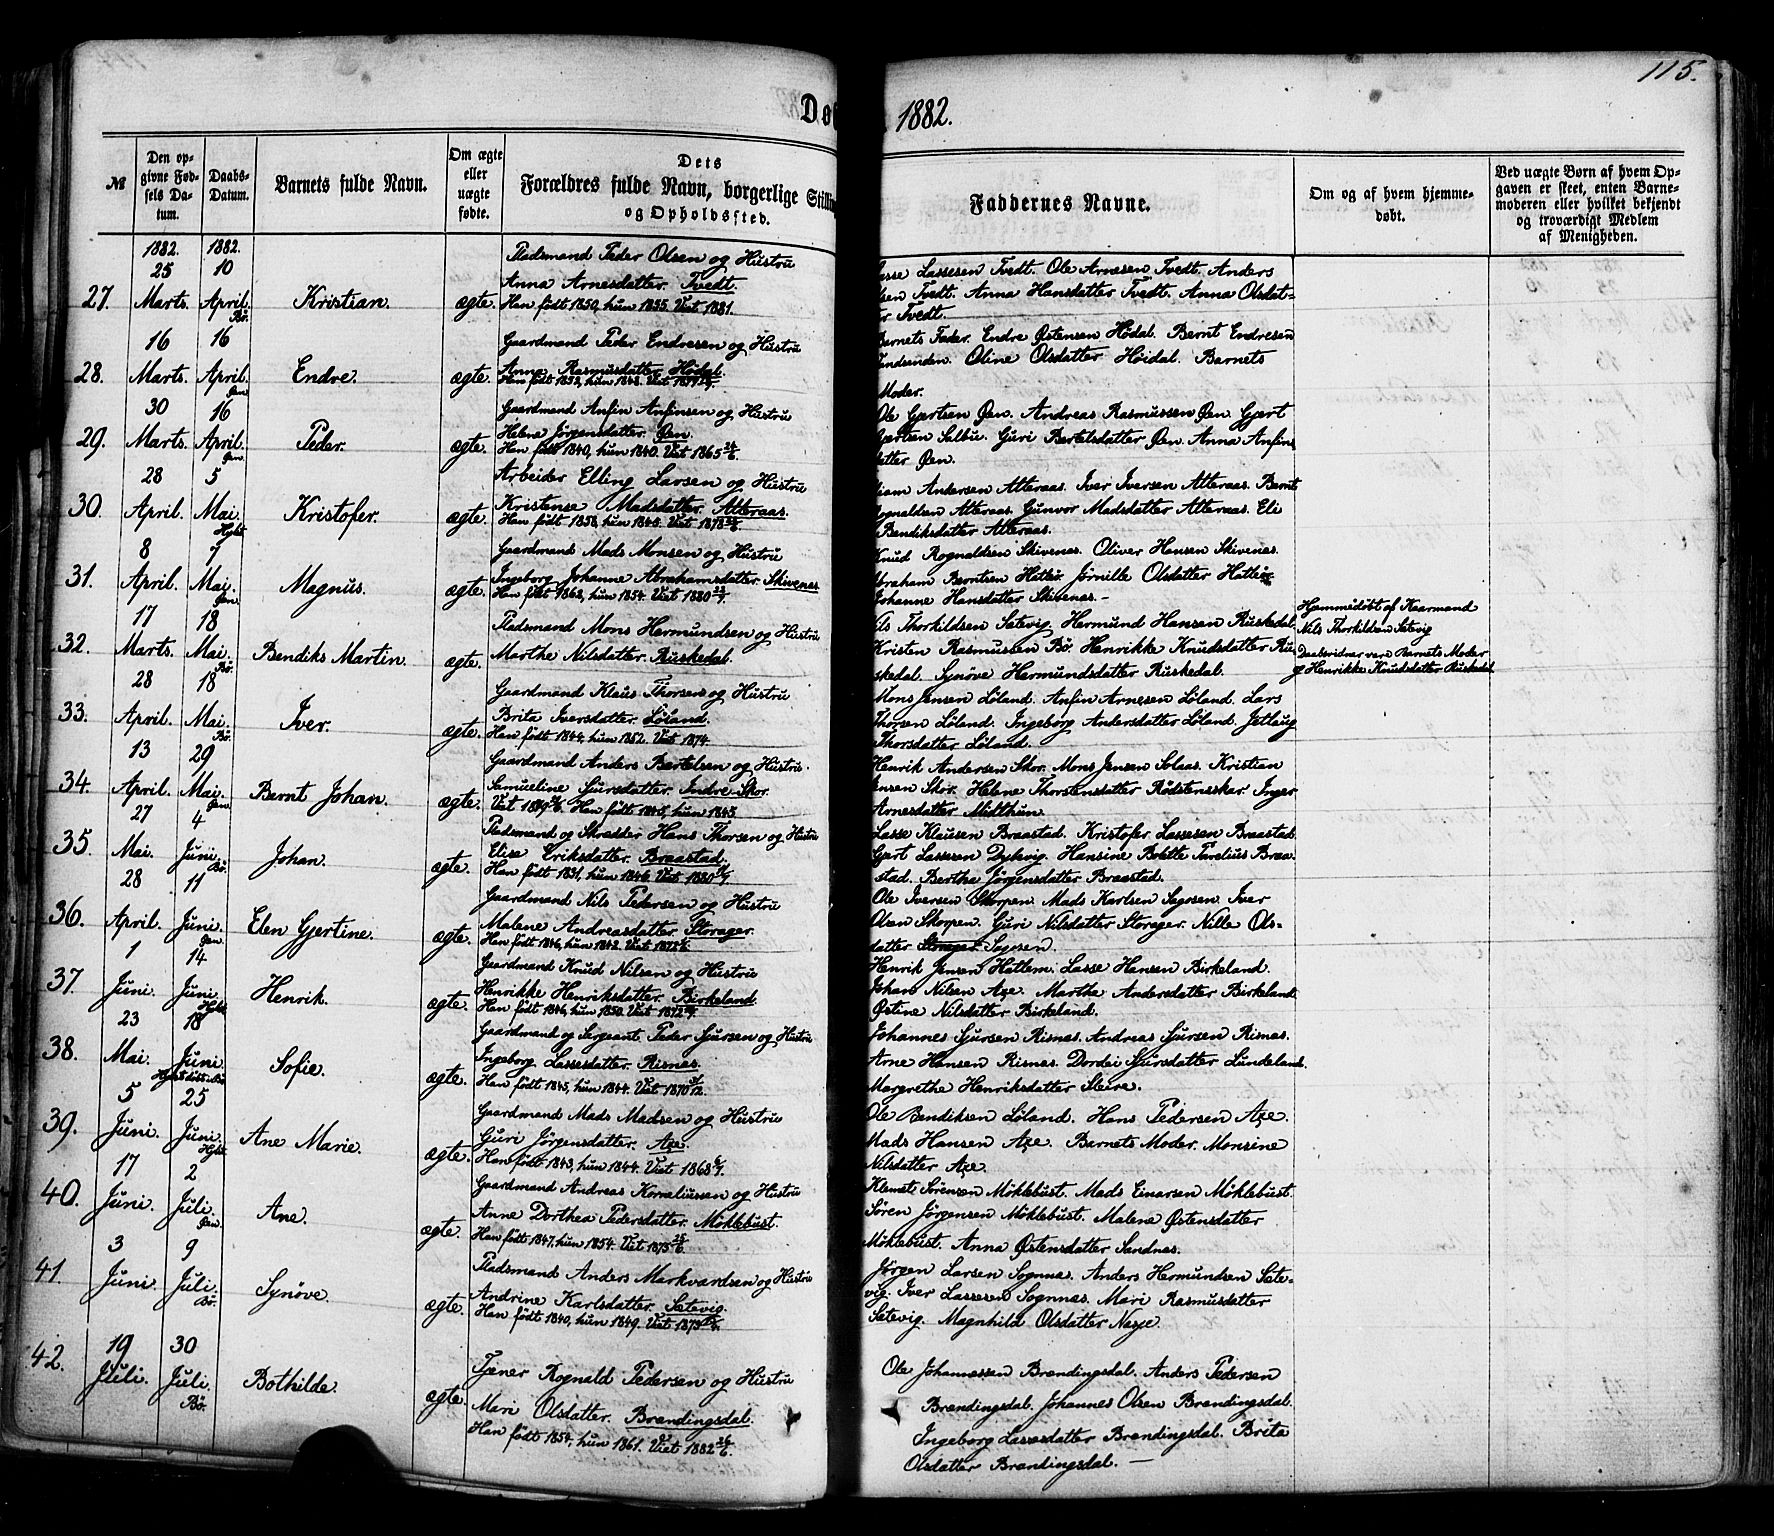 115.
Dø
1882.
№
Den opgivne Fødsels Datum.
Daabs-Datum.
Barnets fulde Navn.
Om ægte eller uægte fødte.
Dets Forældres fulde Navn, borgerlige Stilli
og Opholdssted.
Faddernes Navne.
Om og af hvem hjemmedøbt.
Ved uægte Børn af hvem Opgaven er skeet, enten Barnemoderen eller hvilket bekjendt og troværdigt Medlem af Menigheden.
27.
1882. 25 Marts.
1882. 10 April. Bø.
Kristian.
ægte.
Pladsmand Peder Olsen og Hustru
Anna Arnesdatter Tvedt.
Han født 1850, hun 1855. Viet 1881.
Lassesen Tvedt. Ole Arnesen Tvedt. Anders
Tvedt. Anna Hansdatter Tvedt. Anna Olsdat-
Tvedt.
28.
16 Marts.
16 April.
Endre.
ægte.
Gaardmand Peder Endresen og Hustru
Anna Rasmusdatter Hødal.
Barnets Fader. Endre Østensen Hødal. Bernt Endresen
Oline Olsdatter Høidal. Barnets
Moder.
29.
30 Marts.
16 April.
Peder.
ægte.
Gaardmand Anfin Anfinsen og Hustru
Helene Jørgensdatter. Øen.
Han født 1840, hun 1840. Viet 1865
Ole Gjertsen Øen. Andreas Rasmussen Øen. Gjert
Gjertsen Selbu. Guri Bertelsdatter Øen. Anna Anfins
datter Øen.
30.
28 April.
5 Mai.
Kristofer.
ægte.
Arbeider Elling Larsen og Hustru
Kristense Madsdatter. Atteraas.
Andersen Atteraas. Iver Iversen Atteraas. Bernt
Atteraas. Gunvor Madsdatter Atteraas. Eli
Bendiksdatter Atteraas.
31.
8 April.
7 Mai.
Magnus.
ægte.
Gaardmand Mads Monsen og Hustru
Ingeborg Johanne Abrahamsdatter. Skivenes.
Knud Rognaldsen Skivenes. Oliver Hansen Skivenes.
Abraham Berntsen Hatlø. Jørnille Olsdatter
Johanne Hansdatter Skivenes.
32.
17 Marts.
18 Mai. Bø.
Bendiks Martin.
ægte.
Pladsmand Mons Hermundsen og Hustru
Marthe Nilsdatter. Ruskedal.
Nils Thorkildsen Satevig. Hermund Hansen Ruskedal.
Kristen Rasmussen Bø. Henrikke Knudsdatter Ru-
skedal. Synøve Hermundsdatter Ruskedal.
Hjemmedøbt af Kaarmand
Nils Thorkildsen Satevig
Daabsvidner vare Barnets Moder
og Henrikke Knudsdatter Ruskedal
33.
28 April.
18 Mai. Bø.
Iver.
ægte.
Gaardmand Klaus Thorsen og Hustru
Brita Iversdatter. Løland.
Han født 1844, hun 1852. Viet 1874.
Mons Jensen Løland. Anfin Arnesen Løland. Lars
Thorsen Løland. Ingeborg Andersdatter Løland. Jetlaug
Thorsdatter Løland.
34.
13 April.
29 Mai.
Bernt Johan.
ægte.
Gaardmand Anders Bertelsen og Hustru.
Samueline Sjursdatter. Indre Skor.
Henrik Andersen Skor. Mons Jensen Solaas. Kristian
Jensen Skor. Helene Thorstensdatter Rødstenskar. Inger
Arnesdatter Midthun.
35.
27 Mai.
4 Juni. Bø.
Johan.
ægte.
Pladsmand og Skrædder Hans Thorsen og Hustru
Elisa Eriksdatter. Braastad.
Lasse Klausen Braastad. Kristofer Lassesen Braastad.
Gjert Lassesen Dyrhvig. Hansine Bolette Parelius Braa-
stad. Bertha Jørgensdatter Braastad.
36.
28 April.
11 Juni.
Elen Gjertine.
ægte.
Gaardmand Nils Pedersen og Hustru
Malene Andreasdatter. Storager.
Ole Iversen Skorpen. Mads Karlsen Sagosen. Iver
Olsen Skorpen. Guri Nilsdatter Storager. Nille Ols-
datter Storager. Sagosen.
37.
1 Juni.
14 Juni.
Henrik.
ægte.
Gaardmand Knud Nilsen og Hustru
Henrikke Henriksdatter. Birkeland.
Henrik Jensen Hatlem. Lasse Hansen Birkeland.
Johan Nilsen Aae. Martha Andersdatter Birkeland.
Østine Nilsdatter Birkeland.
38.
23 Mai.
18 Juni.
Sofie.
ægte.
Gaardmand og Sergeant Peder Sjursen og Hustru
Ingeborg Lassesdatter. Risnes.
Johannes Sjursen Risnes. Andreas Sjursen Risnes.
Arne Hansen Risnes. Dordei Sjursdatter Lundeland.
Margrethe Henriksdatter Steire.
39.
5 Juni.
25 Juni.
Ane Marie.
ægte.
Gaardmand Mads Madsen og Hustru
Guri Jørgensdatter. Aae.
Han født 1843, hun 1844. Viet 1868
Ole Bendiksen Løland. Hans Pedersen Aae.
Mads Hansen Aae. Barnets Moder. Monsine
Nilsdatter Aae.
40.
17 Juni.
2 Juli.
Ane.
ægte.
Gaardmand Andreas Korneliussen og Hustru
Anne Dorthea Pedersdatter. Møklebust.
Han født 1847, hun 1854. Viet 1875
Klemet Sørensen Møklebust. Mads Einarsen Møklebust.
Søren Jørgensen Møklebust. Malene Østensdatter
Møklebust. Anna Østensdatter Sandnes.
41.
3 Juni.
9 Juli. Bø.
Synøve.
ægte.
Pladsmand Anders Markvardsen og Hustru
Andrine Karlsdatter. Satevig.
Han født 1840, hun 1849. Viet 1873
Jørgen Larsen Sognnes. Anders Hermundsen Sate-
vig. Iver Lassesen Sognnes. Mari Rasmusdatter
Satevig. Magnhild Olsdatter Nesje.
42.
19 Juli.
30 Juli. Bø.
Bothilde.
ægte.
Tjener Rognald Pedersen og Hustru
Mari Olsdatter. Brandingsdal.
Han født 1854, hun 1861. Viet 1882
Ole Johannessen Brandingsdal. Anders Pedersen
Brandingsdal. Johannes Olsen Brandingsdal.
Ingeborg Lassesdatter Brandingsdal. Brita
Olsdatter Brandingsdal.